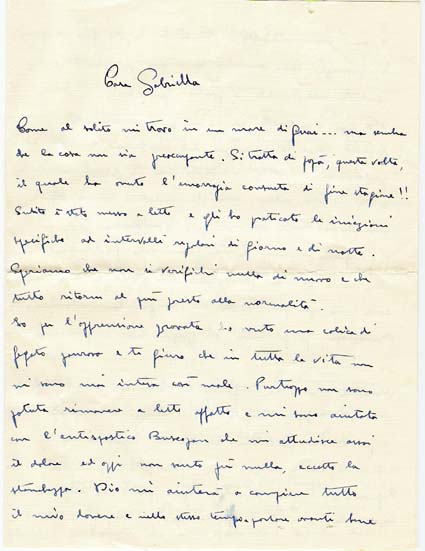 Cara Gabriella
Come al solito mi trovo in un mare di guai... ma sembra
che la cosa non sia preoccupante. Si tratta di papà, questa volta,
il quale ha avuto l'emorragia consueta di fine stagione!!
Subito è stato messo a letto e gli ho praticato le iniezioni
specifiche ad intervalli regolari di giorno e di notte.
Speriamo che non si verifichi nulla di nuovo e che
tutto ritorni al più presto alla normalità.
Io per l'apprensione provata ho avuto una colica di
fegato paurosa e ti giuro che in tutta la vita non
mi sono mai intesa così male. Purtroppo non sono
potuta rimanere a letto affatto e mi sono aiutata
con l'antispastico Buscopan che mi attudisce assai
il dolore ed oggi non sento più nulla, eccetto la
stanchezza. Dio mi aiuterà a compiere tutto
il mio dovere e nello stesso tempo portare avanti bene